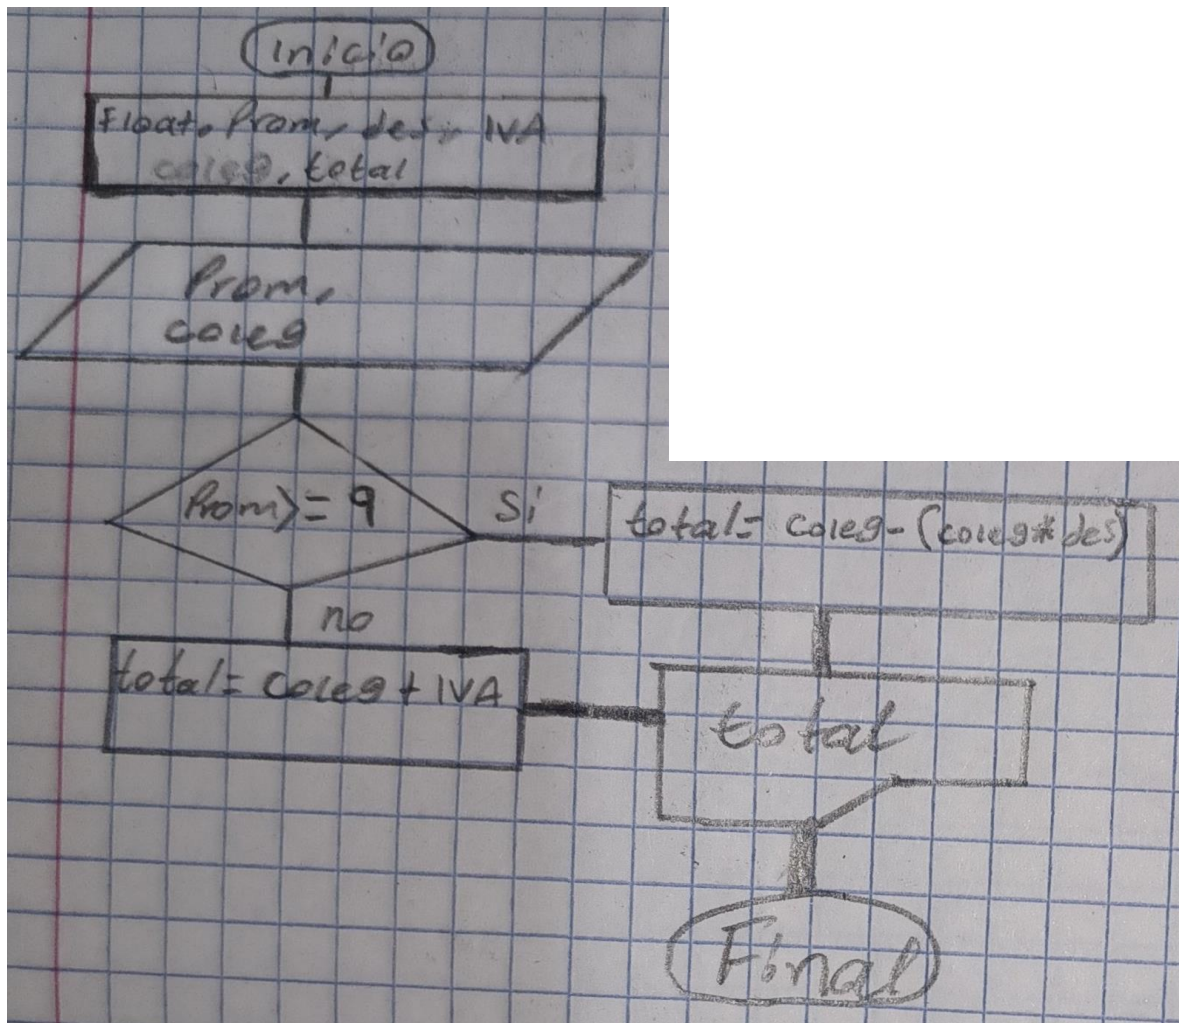 inicio
Float. Prom, des, IVA
coleg, total
Prom,
coleg
Prom>= 9
Si
total= coleg-(coleg*des)
no
total= coleg + IVA
total
Final